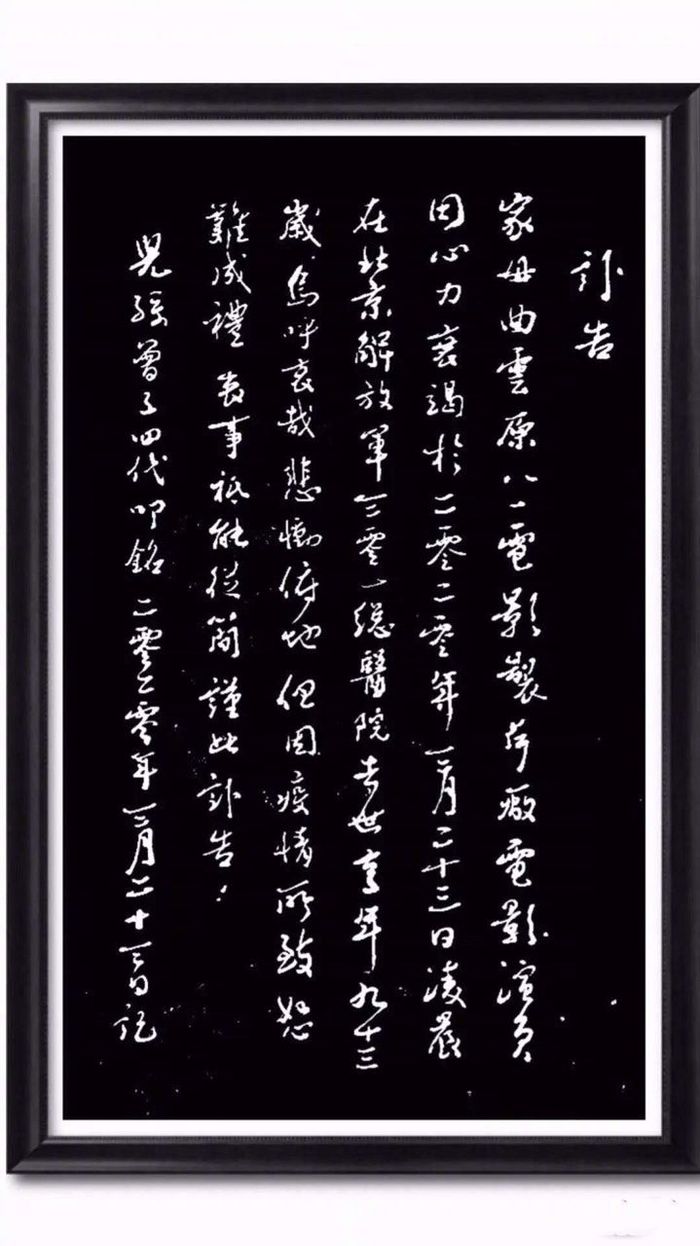 訃告
家母曲雲原八一電影製片廠電影演員
因心力衰竭於二零二零年三月二十三日凌晨
在北京解放軍三零一總醫院去世享年九十三
歲嗚呼哀哉悲慟倚地但因疫情所致恕
難成禮喪事祗能從簡謹此訃告！
兒孫曾孑四代叩銘二零二零年三月二十三日記